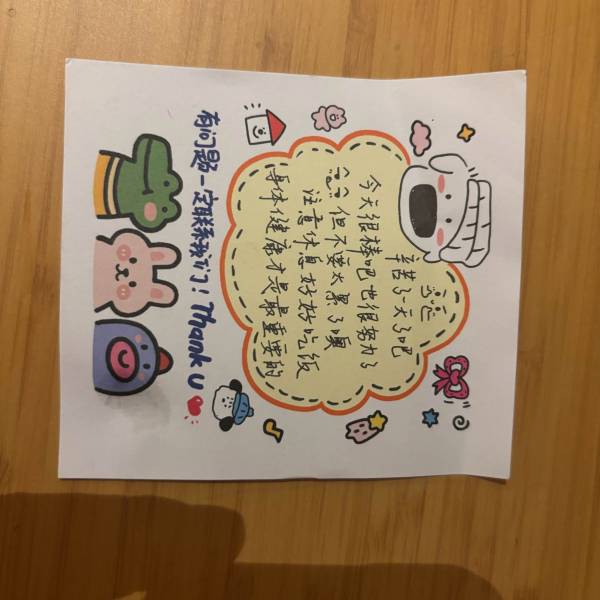 辛苦了一天了吧
今天很棒吧也很努力了
但不要太累了噢
注意休息好好吃饭
身体健康才是最重要的
有问题一定联系我们! Thank U